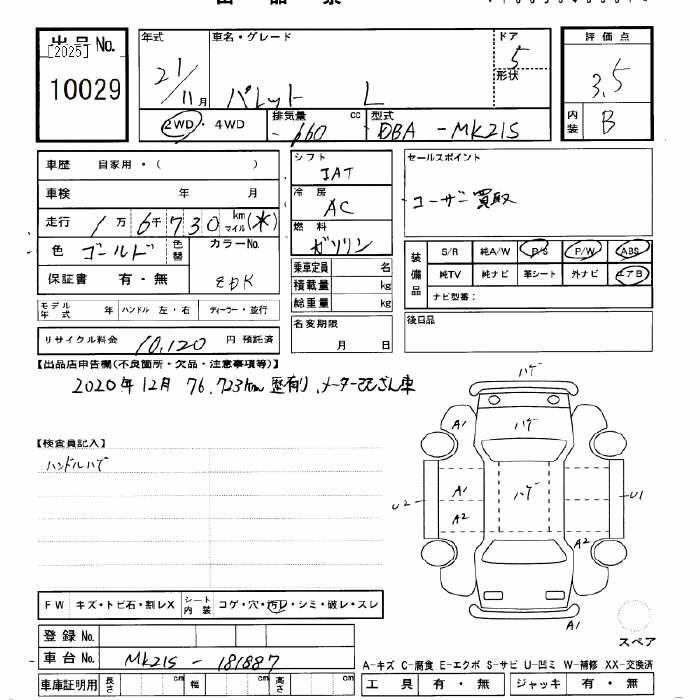 出品No. [2025]
10029
年式 21/11月
車名・グレード パレット L
ドア 5
形状
評価点 3.5
内装 B
2WD・4WD
排気量 660 cc
型式 DBA-MK21S
車歴 自家用・( )
車検 年 月
走行 1万6千730 km マイル (*)
色 ゴールド 色替
カラーNo.
保証書 有・無
モデル年式 年 ハンドル 左・右 ディーラー・並行
リサイクル料金 10,120 円 預託済
シフト IAT
冷房 AC
燃料 ガソリン
乗車定員 名
積載量 kg
総重量 kg
名変期限 月 日
セールスポイント
ユーザー買取
装備品 S/R 純A/W P/S P/W ABS
純TV 純ナビ 革シート 外ナビ エアB
ナビ型番:
後日品
【出品店申告欄(不良箇所・欠品・注意事項等)】
2020年12月 76,723km 歴有り、メーター改ざん車
【検査員記入】
ハンドルハゲ
ハゲ
A1 ハゲ
U2 A1 ハゲ U1
A2
A2
A1
スペア
FW キズ・トビ石・割レX シート内装 コゲ・穴・汚レ・シミ・破レ・スレ
登録No.
車台No. MK21S-181887
車庫証明用 長さ cm 幅 cm 高さ cm
A-キズ C-腐食 E-エクボ S-サビ U-凹ミ W-補修 XX-交換済
工具 有・無 ジャッキ 有・無